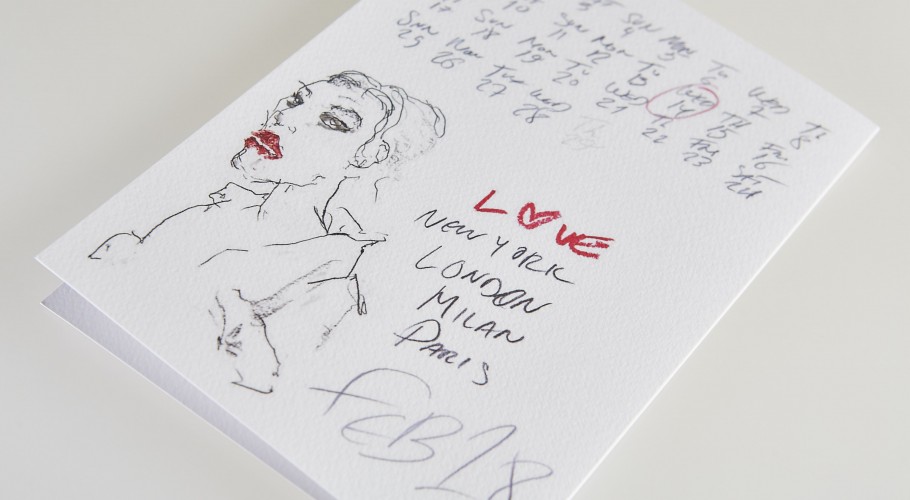 SUN MON TU WED TH
4 5 6 7 8
SUN MON TU WED TH FRI
10 11 12 13 14 15 16
SUN MON TU WED T FRI SAT
17 18 19 20 21 22 23 24
SUN MON TUE WED
25 26 27 28
LOVE
NEW YORK
LONDON
MILAN
PARIS
FEB 18